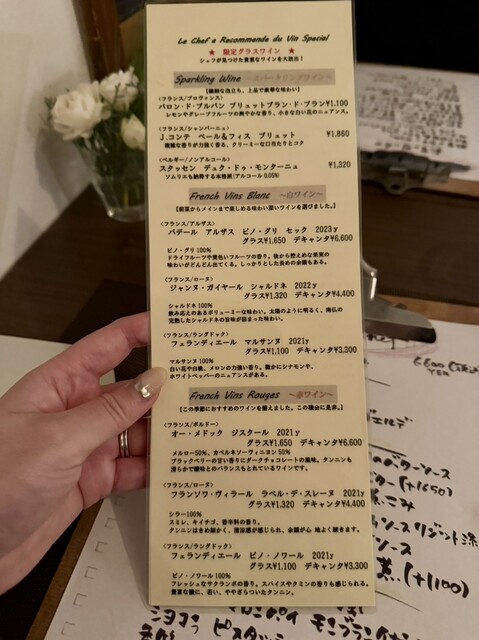 Le Chef a Recommende du Vin Special
★ 限定グラスワイン ★
シェフが見つけた貴重なワインを大放出！
Sparkling Wine ～スパークリングワイン～
【繊細な泡立ち、上品で豪華な味わい】
＜フランス/プロヴァンス＞
バロン・ド・ブルバン ブリュットブラン・ド・ブラン¥1,100
レモンやグレープフルーツの爽やかな香り、小さな白い花のニュアンス。
＜フランス/シャンパーニュ＞
J.コンテ ペール＆フィス ブリュット ¥1,860
複雑な香りが力強く香る、クリーミーな口当たりとコク
＜ベルギー/ノンアルコール＞
スタッセン デュク・ドゥ・モンターニュ ¥1,320
ソムリエも納得する本格派(アルコール 0.05%)
French Vins Blanc ～白ワイン～
【前菜からメインまで楽しめる味わい深いワインを選びました。】
＜フランス/アルザス＞
バデール アルザス ピノ・グリ セック 2023y
グラス¥1,650 デキャンタ¥6,600
ピノ・グリ 100%
ドライフルーツや黄色いフルーツの香り。後から控えめな果実の
味わいがどんどん出てくる。しっかりとした長めの余韻もある。
＜フランス/ローヌ＞
ジャンヌ・ガイヤール シャルドネ 2022y
グラス¥1,320 デキャンタ¥4,400
シャルドネ 100%
飲み応えのあるボリューミーな味わい。太陽のように明るく、南仏の
完熟したシャルドネの旨味が詰まった味わい。
＜フランス/ラングドック＞
フェランディエール マルサンヌ 2021y
グラス¥1,100 デキャンタ¥3,300
マルサンヌ 100%
白い花や白桃、メロンの力強い香り。微かにシナモンや、
ホワイトペッパーのニュアンスがある。
French Vins Rouges ～赤ワイン～
【この季節におすすめのワインを揃えました。この機会に是非。】
＜フランス/ボルドー＞
オー・メドック ジスクール 2021y
グラス¥1,650 デキャンタ¥6,600
メルロー50%、カベルネソーヴィニヨン 50%
ブラックベリーの甘い香りにダークチョコレートの風味。タンニンも
滑らかで酸味とのバランスもとれているワインです。
＜フランス/ローヌ＞
フランソワ・ヴィラール ラペル・デ・スレーヌ 2021y
グラス¥1,320 デキャンタ¥4,400
シラー100%
スミレ、キイチゴ、香辛料の香り。
タンニンはきめ細かく、清涼感が感じられ、余韻が心地よく続きます。
＜フランス/ラングドック＞
フェランディエール ピノ・ノワール 2021y
グラス¥1,100 デキャンタ¥3,300
ピノ・ノワール 100%
フレッシュなサクランボの香り。スパイスやクミンの香りも感じられる。
豊富な酸に、若い、ややざらついたタンニン。
バターソース
(+1650)
ソースリゾット添
ソース
(+1100)
ピスタ